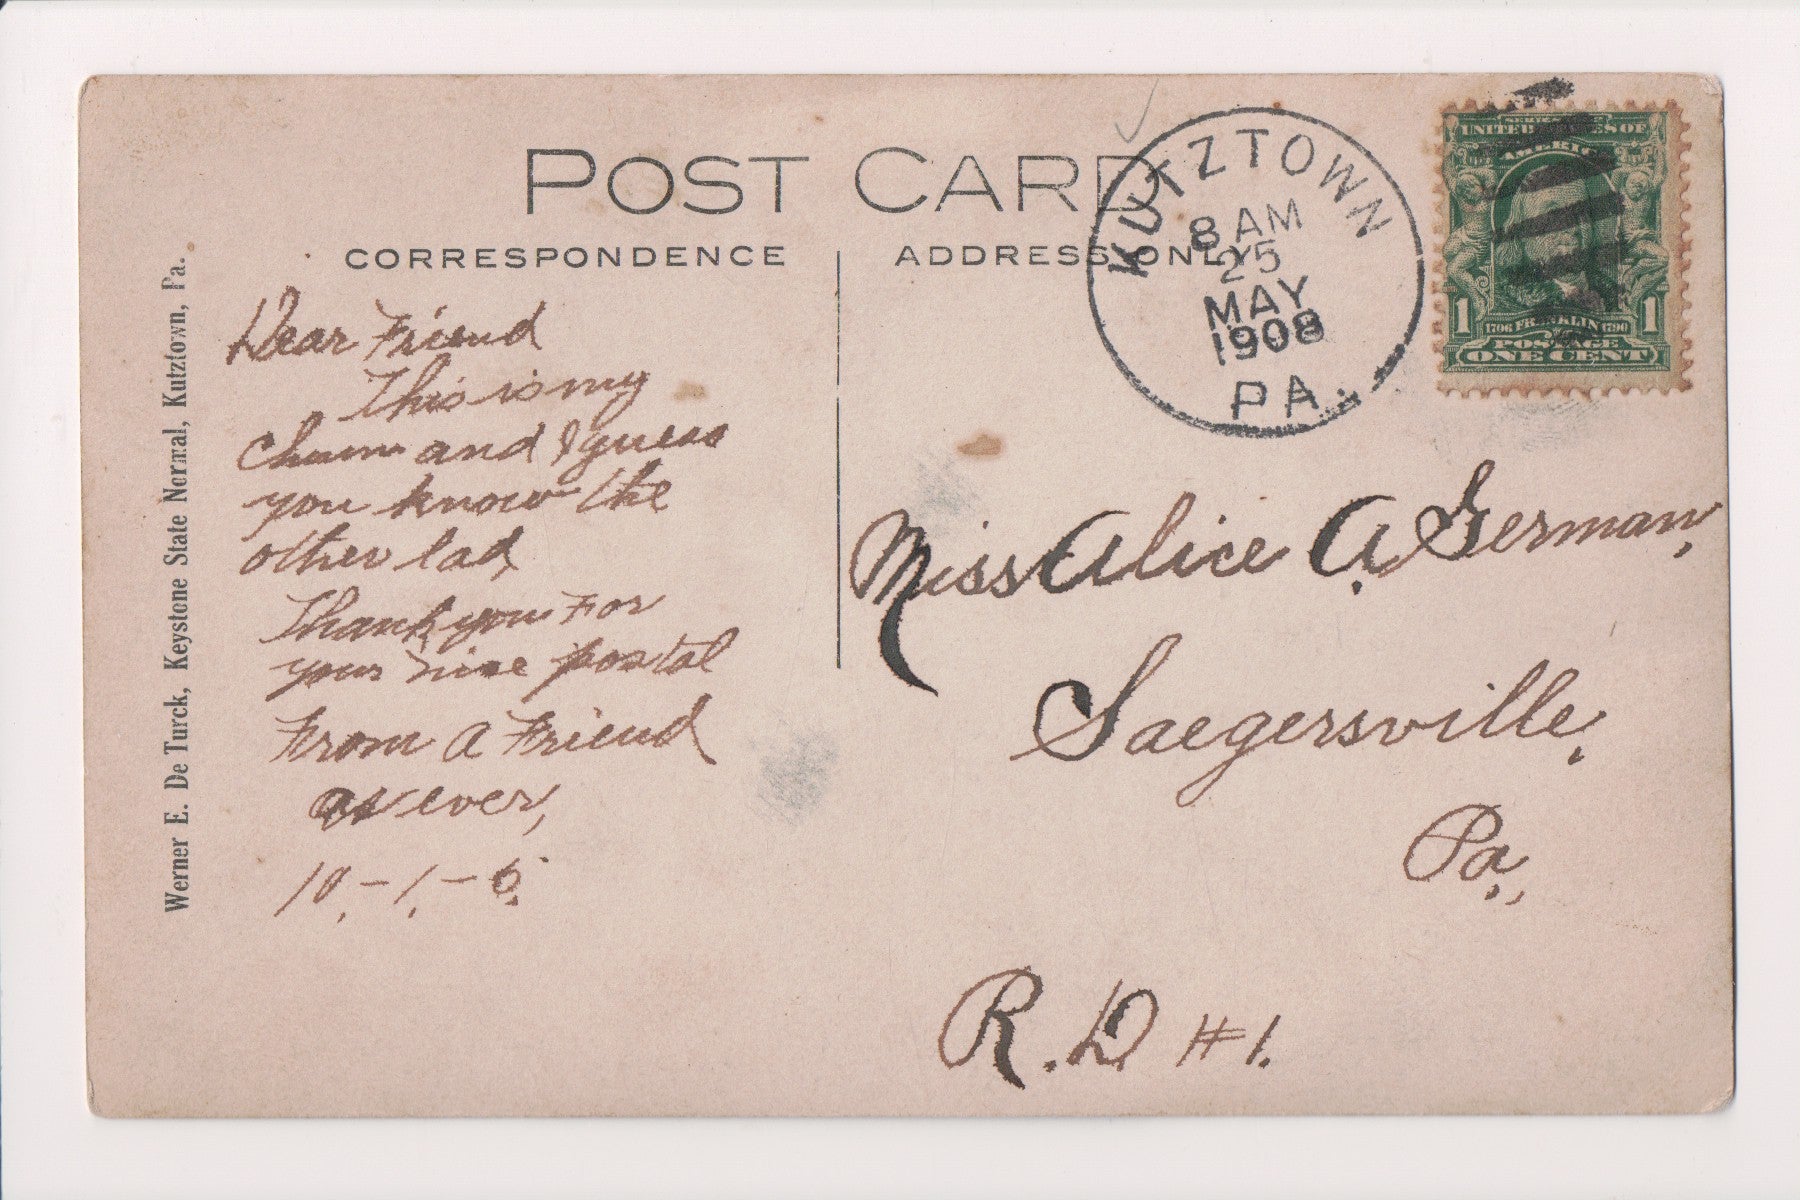 POST CARD
CORRESPONDENCE
ADDRESS ONLY
Werner E. De Turck, Keystone State Normal, Kutztown, Pa.
Dear Friend
This is my
chum and I guess
you know the
other lad,
Thank you For
your nice postal
From a Friend
as ever,
10,-1,-6.
KUTZTOWN
8 AM
25
MAY
1908
PA.
UNITED STATES OF
AMERICA
1 1706 FRANKLIN 1790 1
POSTAGE
ONE CENT
Miss Alice A. German,
Saegersville,
Pa.,
R.D. #1.